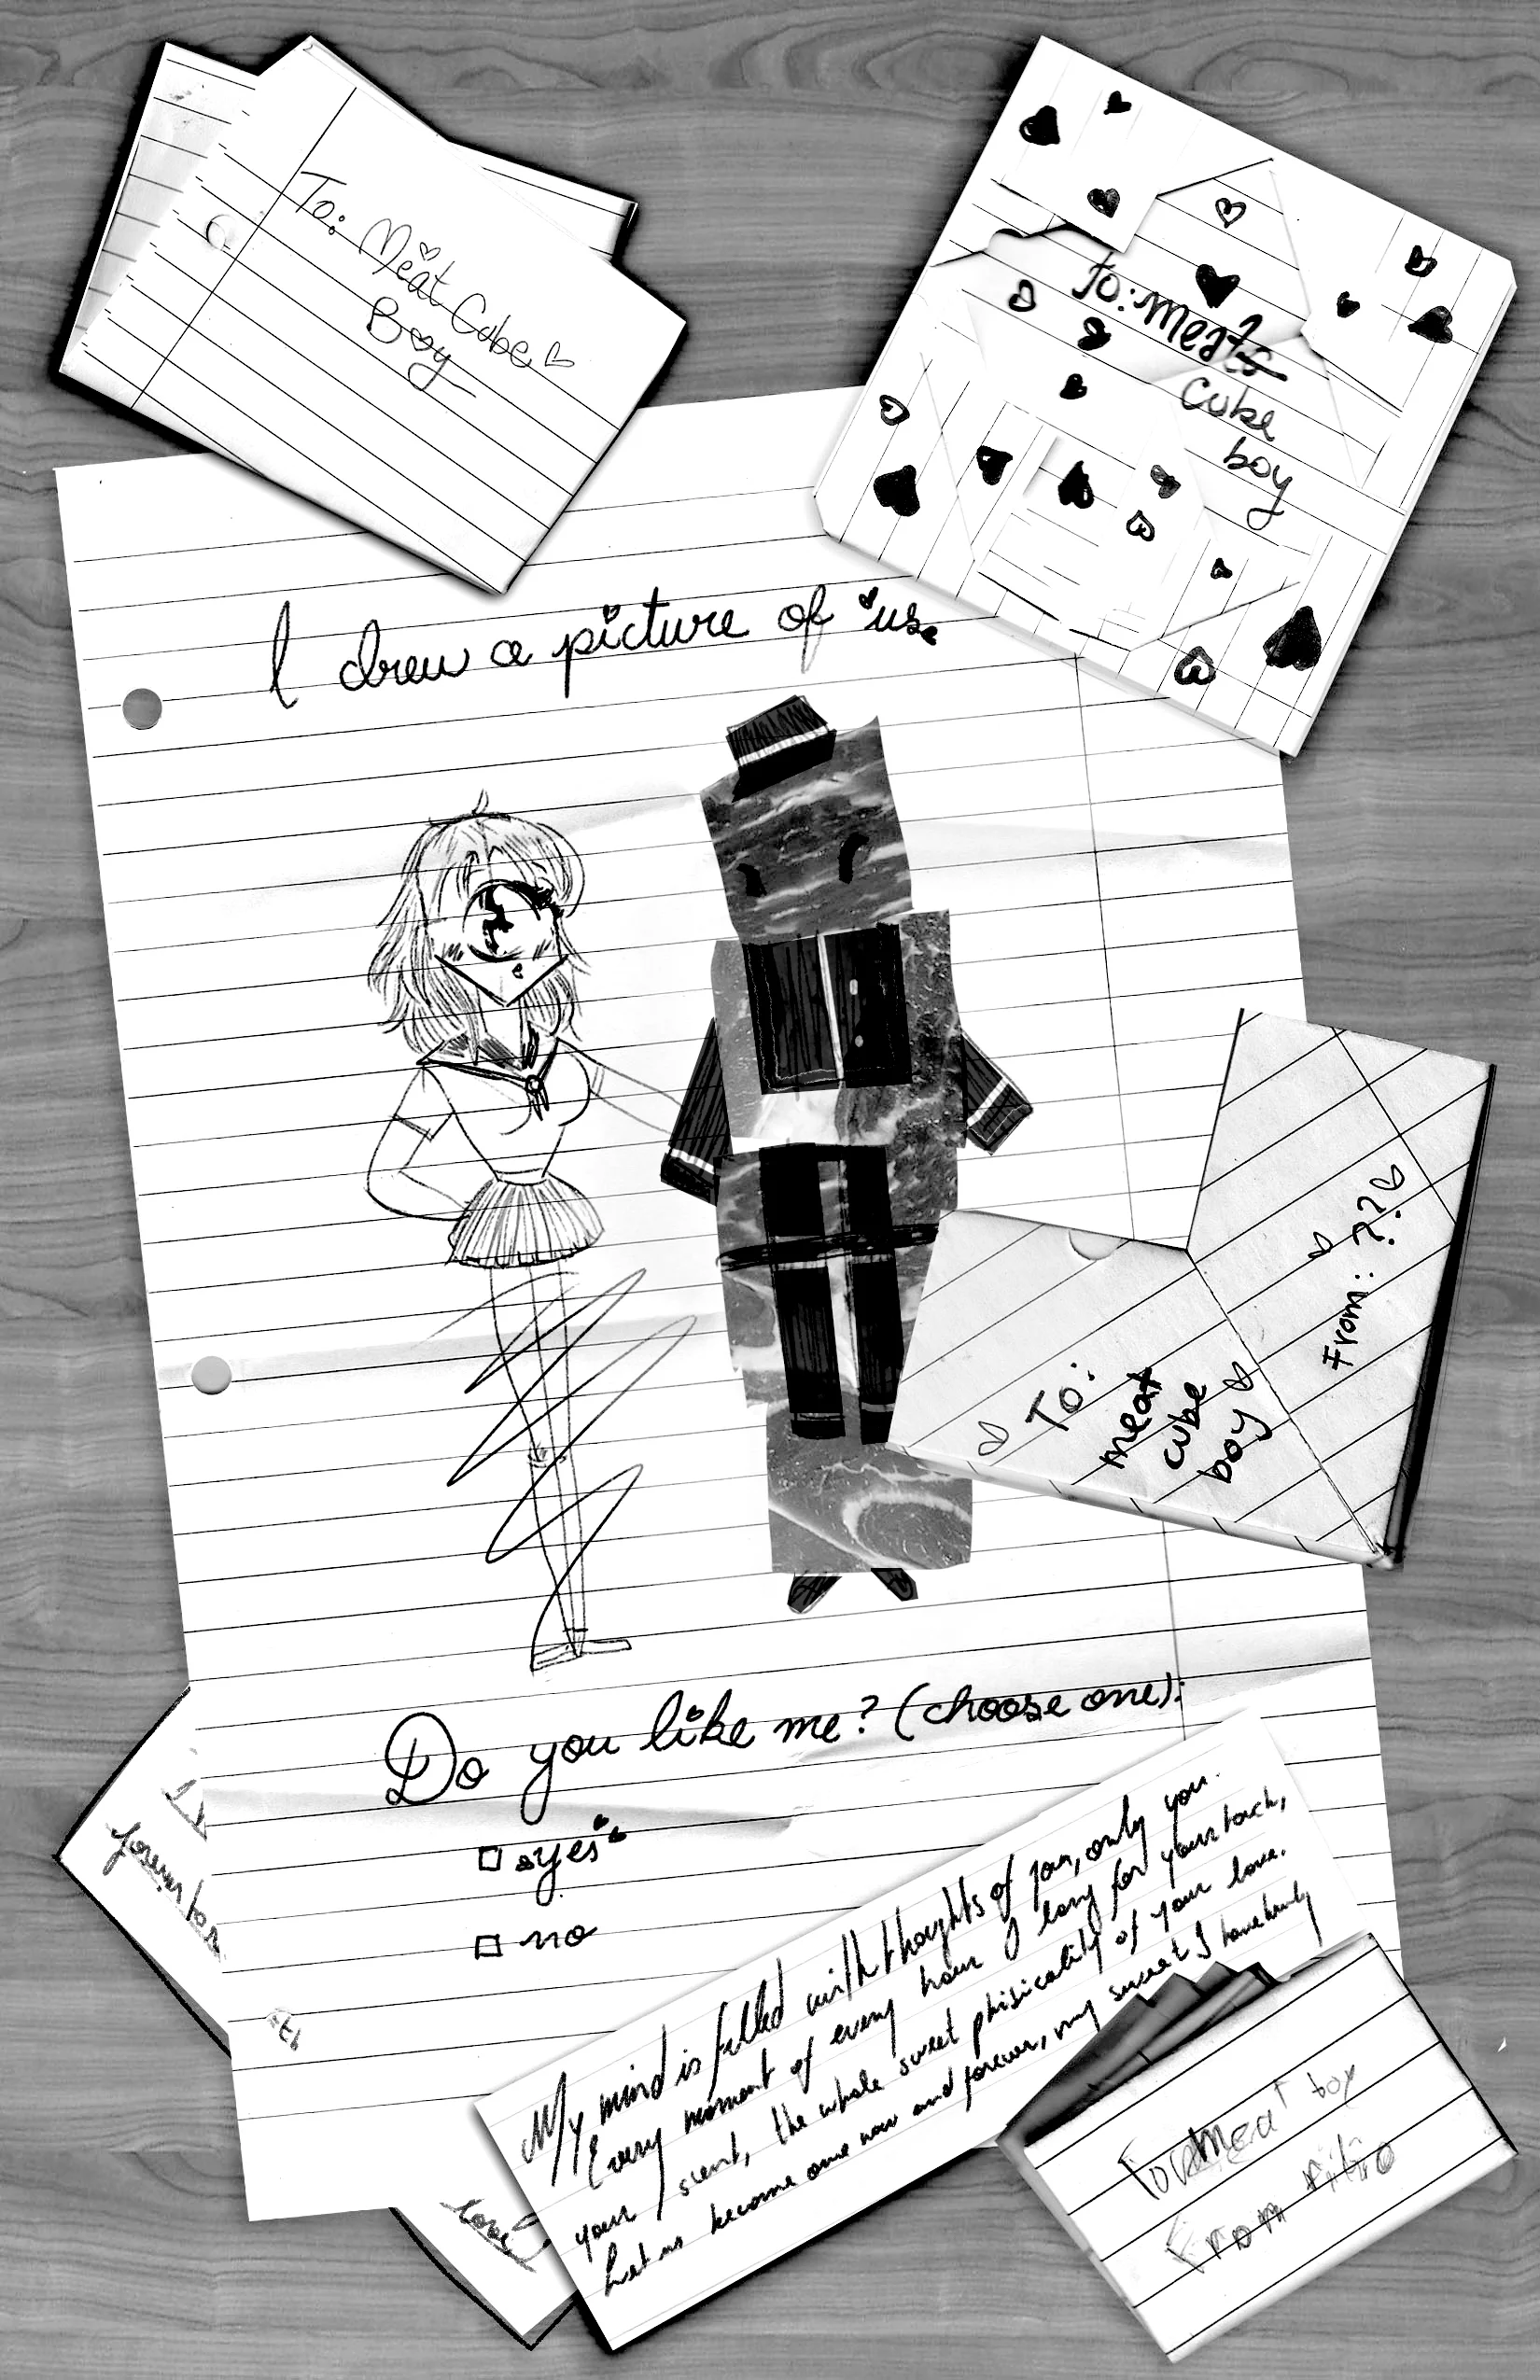 To: Meat Cube
Boy
To: meat
cube
boy
I drew a picture of us
To:
meat
cube
boy
From: ??
Do you like me? (choose one):
yes
no
My mind is filled with thoughts of you, only you.
Every moment of every hour I long for your touch,
your scent, the whole sweet phisicality of your love.
Let us become one now and forever, my sweet I
love
boy
From